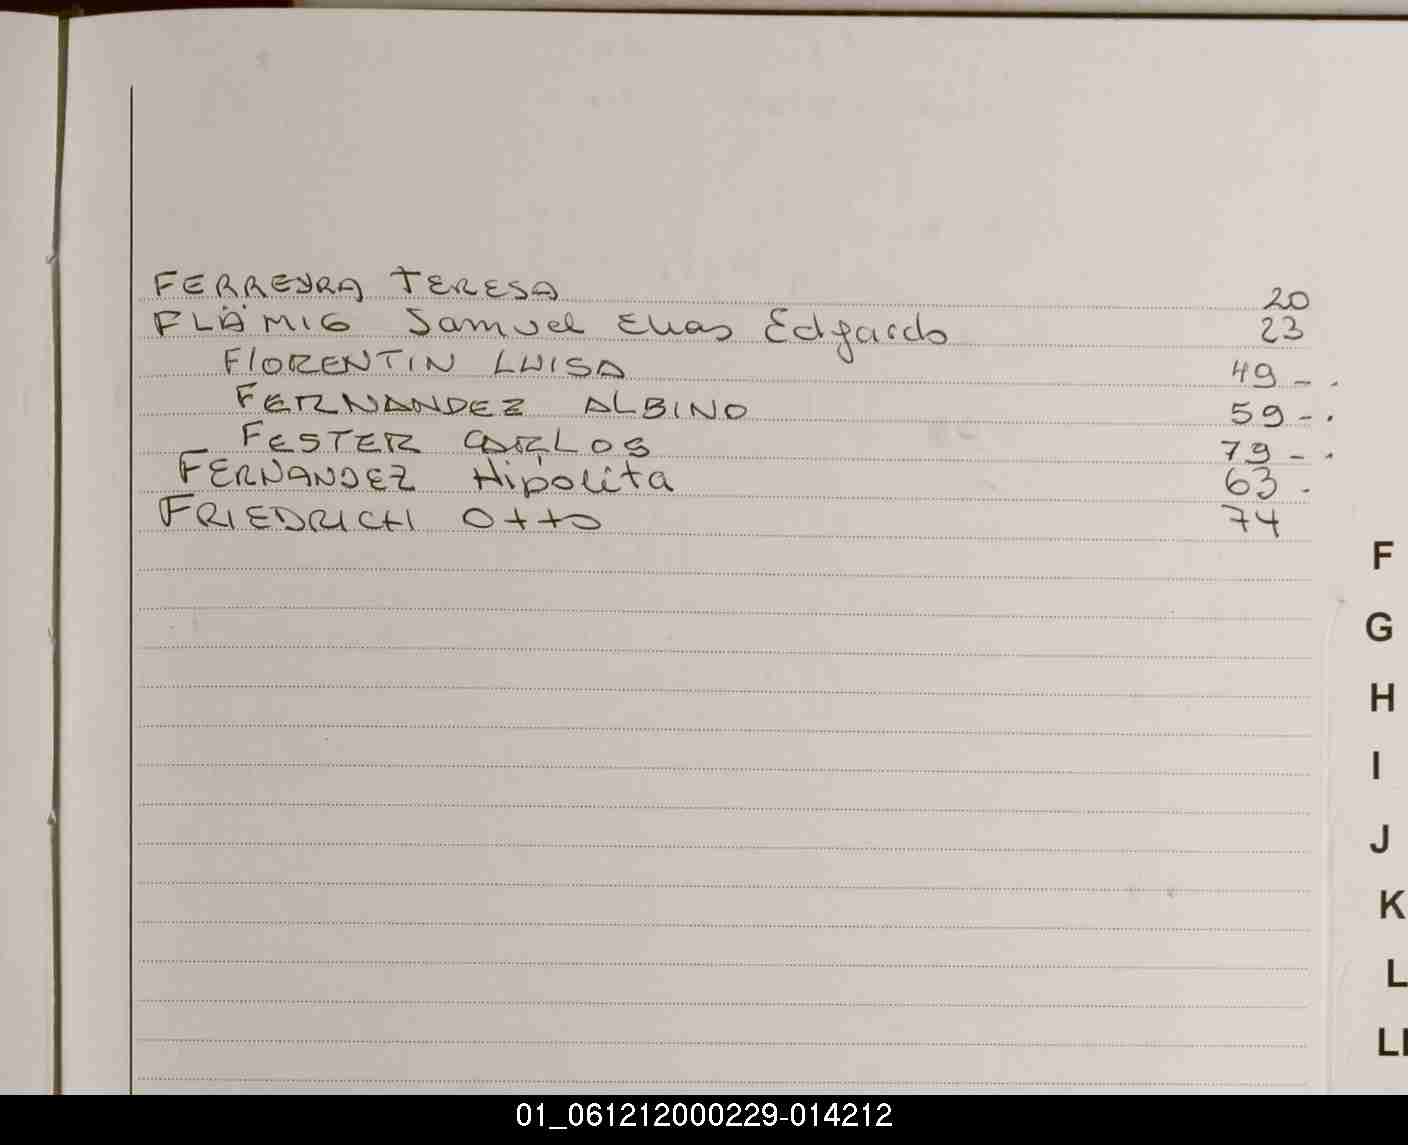 FERREYRA TERESA 20
FLÄMIG Samuel Elias Edgardo 23
FlORENTIN LUISA 49 - .
FERNANDEZ ALBINO 59 - .
FESTER CARLOS 79 - .
FERNANDEZ Hipólita 63 .
FRIEDRICH Otto 74
F
G
H
I
J
K
L
Ll
01_061212000229-014212